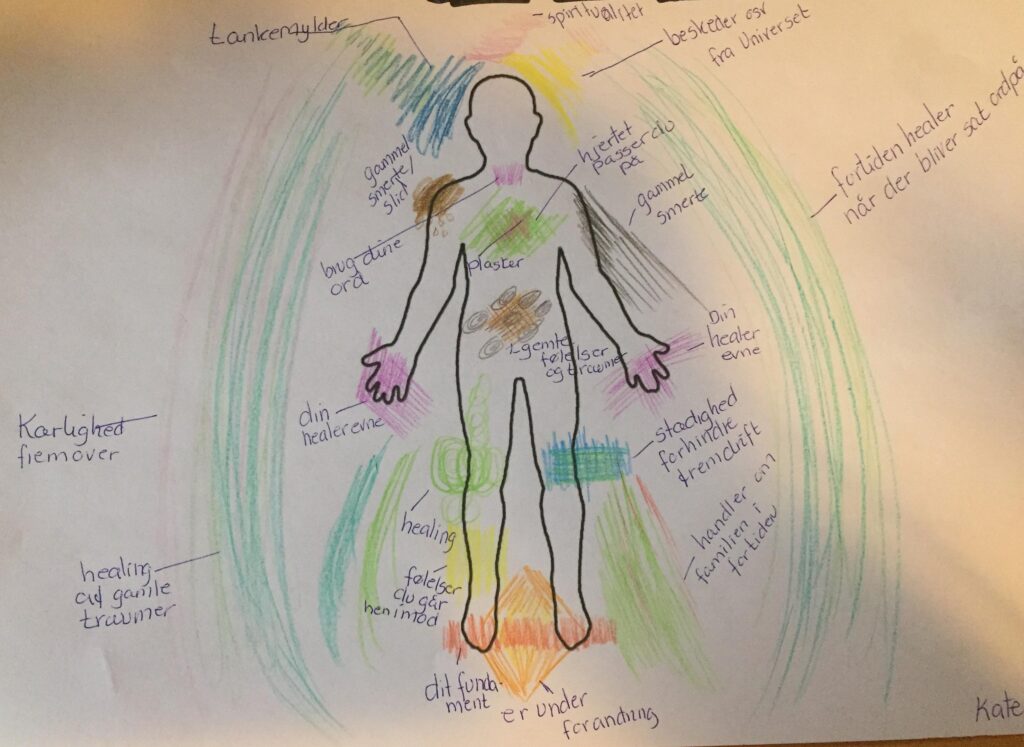 tankemylder
spiritualitet
beskeder osv
fra Universet
gammel
smerte/
slid
hjertet
passer du
på
gammel
smerte
fortiden healer
når der bliver sat ord på
brug dine
ord
plaster
gemte
følelser
og traumer
Din
healer
evne
din
healer evne
Kærlighed
fremover
stædighed
forhindre
fremdrift
healing
handler om
familien i
fortiden
healing
af gamle
traumer
følelser
du går
hen imod
dit funda-
ment
er under
forandring
Kate